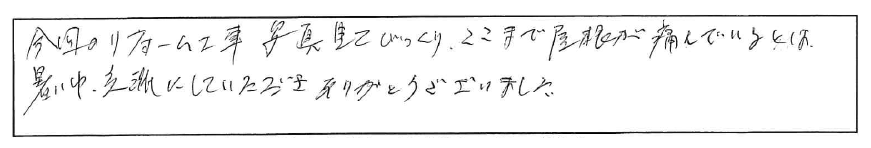 今回のリフォーム工事 写真見てびっくり、ここまで屋根が痛んでいるとは、
暑い中、立派にしていただきありがとうございました。